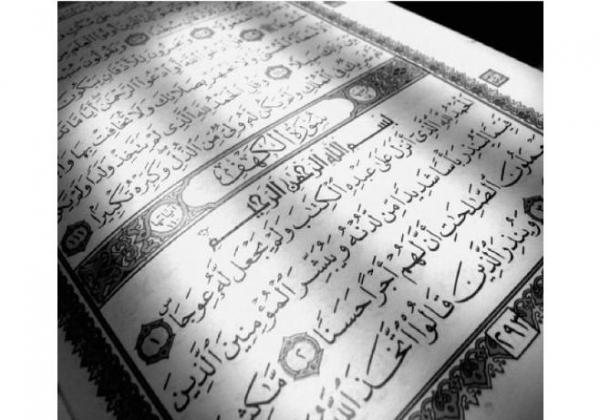 أَوِ ٱدْعُوا۟ ٱلرَّحْمَٰنَ أَيًّا مَّا
بِصَلَاتِكَ وَلَا تُخَافِتْ بِهَا
وَقُلِ ٱلْحَمْدُ لِلَّهِ ٱلَّذِى لَمْ يَتَّخِذْ وَلَدًا وَلَمْ يَكُن
وَلَمْ يَكُن لَّهُۥ وَلِىٌّ مِّنَ ٱلذُّلِّ وَكَبِّرْهُ تَكْبِيرًۢا ١١١
سُورَةُ الكَهْفِ
بِسْمِ ٱللَّهِ ٱلرَّحْمَٰنِ ٱلرَّحِيمِ
ٱلْحَمْدُ لِلَّهِ ٱلَّذِىٓ أَنزَلَ عَلَىٰ عَبْدِهِ ٱلْكِتَٰبَ وَلَمْ يَجْعَل لَّهُۥ عِوَجَاۜ ١
قَيِّمًا لِّيُنذِرَ بَأْسًا شَدِيدًا مِّن لَّدُنْهُ وَيُبَشِّرَ ٱلْمُؤْمِنِينَ ٱلَّذِينَ
يَعْمَلُونَ ٱلصَّٰلِحَٰتِ أَنَّ لَهُمْ أَجْرًا حَسَنًا ٢ مَّٰكِثِينَ
وَيُنذِرَ ٱلَّذِينَ قَالُوا۟ ٱتَّخَذَ ٱللَّهُ
٢٩٣